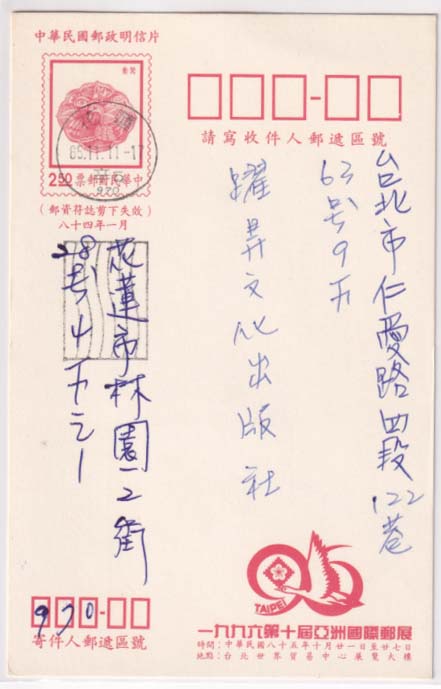 中華民國郵政明信片
2.50
票郵國民華中
(郵資符誌剪下失效)
八十四年一月
85.11.11.-17
970
請寫收件人郵遞區號
台北市仁愛路四段122巷
63號9F
躍昇文化出版社
花蓮市林園二街
28號4F之1
970
寄件人郵遞區號
TAIPEI
96
一九九六第十屆亞洲國際郵展
時間:中華民國八十五年十月廿一日至廿七日
地點:台北世界貿易中心展覽大樓